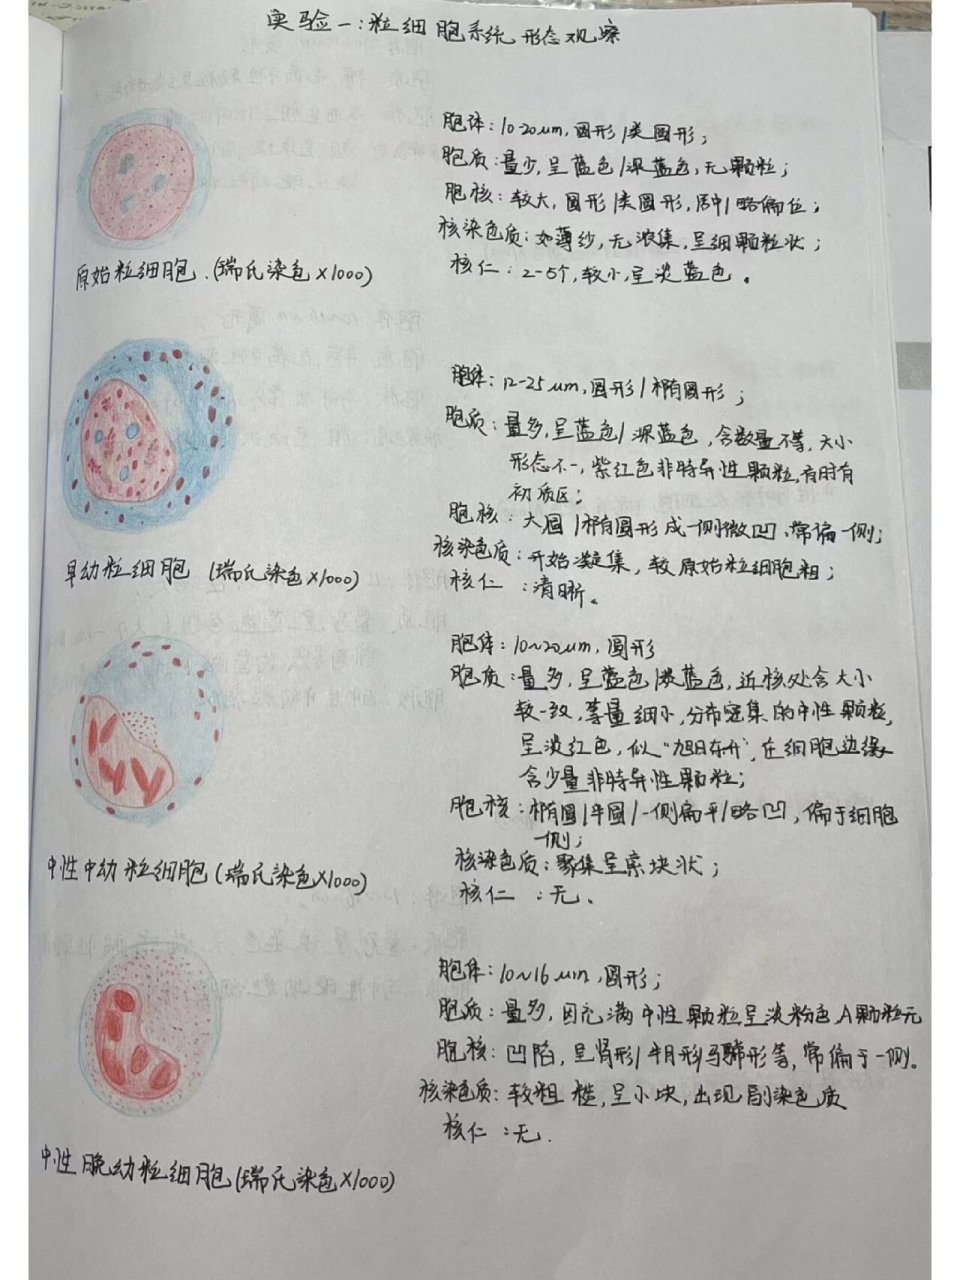 实验一:粒细胞系统形态观察
胞体:10-20um,圆形/类圆形;
胞质:量少,呈蓝色/深蓝色,无颗粒;
胞核:较大,圆形/类圆形,居中/略偏位;
核染色质:如薄纱,无浓集,呈细颗粒状;
核仁:2-5个,较小,呈淡蓝色。
原始粒细胞.(瑞氏染色×1000)
胞体:12-25um,圆形/椭圆形;
胞质:量多,呈蓝色/深蓝色,含数量不等,大小
形态不一,紫红色非特异性颗粒,有时有
初质区;
胞核:大圆/椭圆形成一侧微凹、常偏一侧;
核染色质:开始凝集,较原始粒细胞粗;
核仁:清晰。
早幼粒细胞(瑞氏染色×1000)
胞体:10~20um,圆形
胞质:量多,呈蓝色/淡蓝色,近核处含大小
较一致,等量细小,分布密集的中性颗粒,
呈淡红色,似"旭日东升",在细胞边缘
含少量非特异性颗粒;
胞核:椭圆/半圆/一侧扁平/略凹,偏于细胞
一侧;
核染色质:聚集呈索块状;
核仁:无.
中性中幼粒细胞(瑞氏染色×1000)
胞体:10~16um,圆形;
胞质:量多,因充满中性颗粒呈淡粉色,A颗粒无
胞核:凹陷,呈肾形/半月形马蹄形等,常偏于一侧。
核染色质:较粗糙,呈小块,出现副染色质
核仁:无.
中性晚幼粒细胞(瑞氏染色×1000)